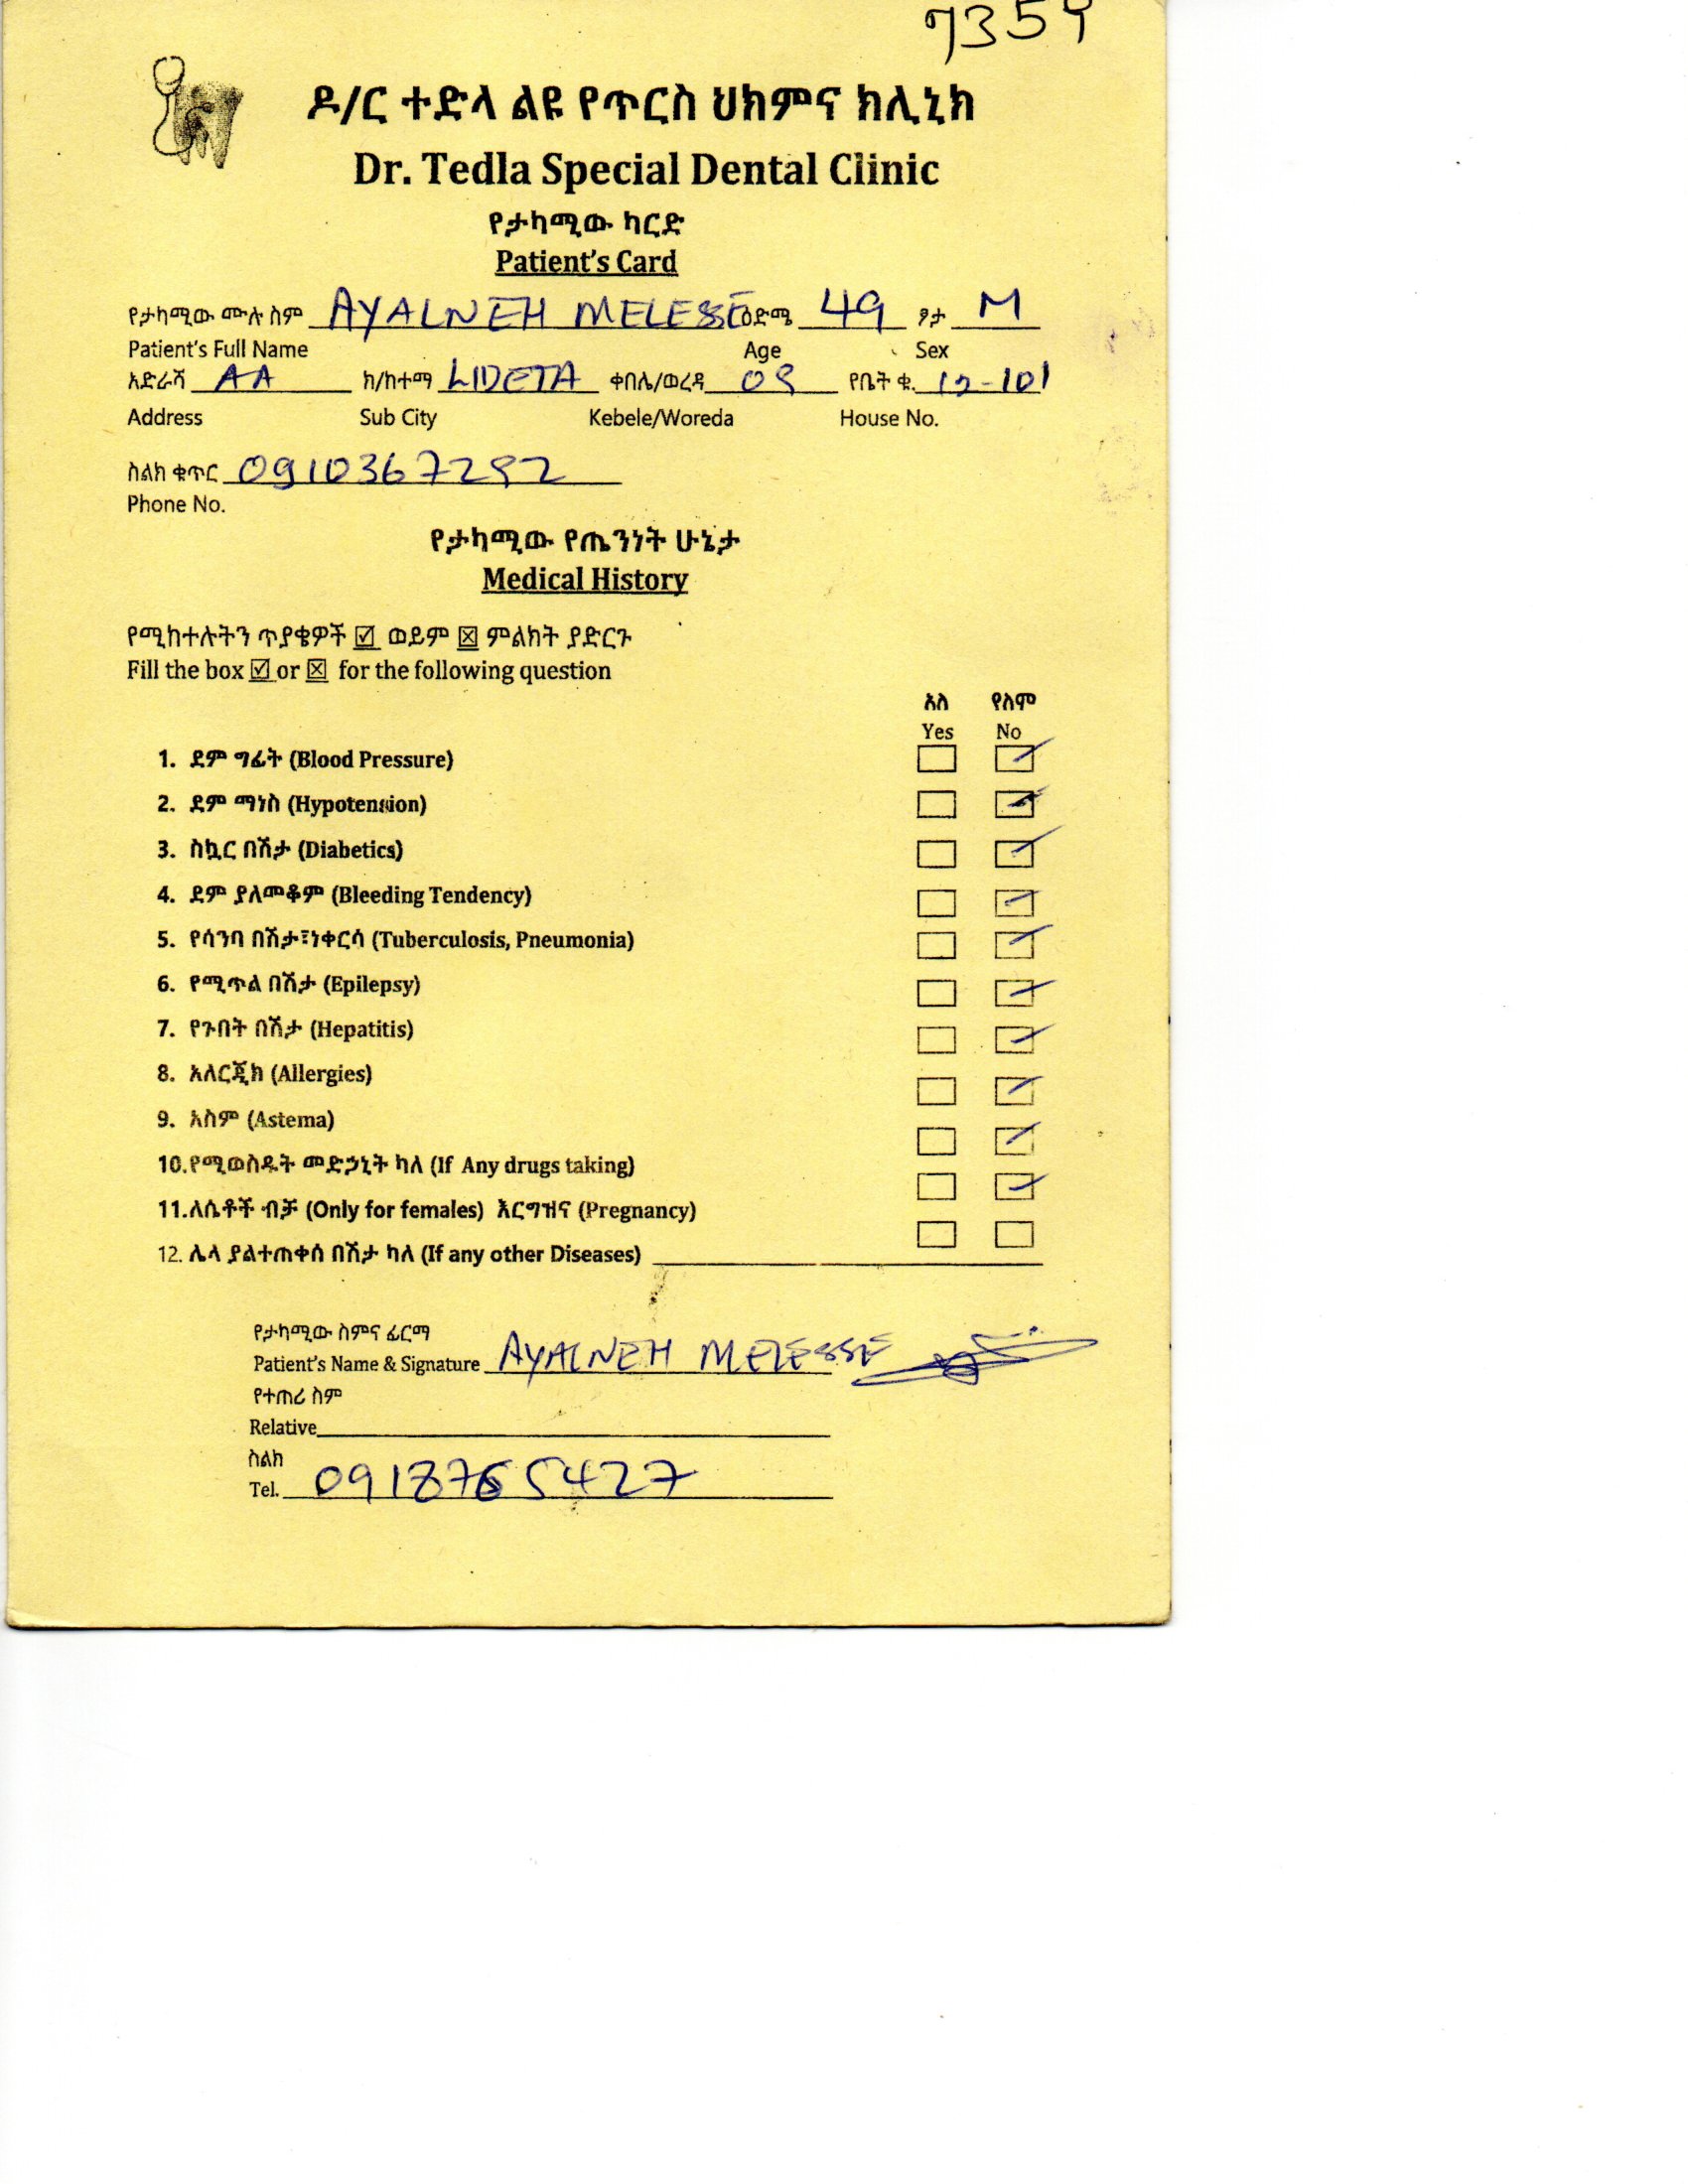 7359
ዶ/ር ተድላ ልዩ የጥርስ ህክምና ክሊኒክ
Dr. Tedla Special Dental Clinic
የታካሚው ካርድ
Patient's Card
የታካሚው ሙሉ ስም AYALNEH MELESSE ዕድሜ 49 ፆታ M
Patient's Full Name Age Sex
አድራሻ AA ክ/ከተማ LIDETA ቀበሌ/ወረዳ የቤት ቁ. 12-101
Address Sub City Kebele/Woreda House No.
ስልክ ቁጥር 0910367292
Phone No.
የታካሚው የጤንነት ሁኔታ
Medical History
የሚከተሉትን ጥያቄዎች ☑ ወይም ☒ ምልክት ያድርጉ
Fill the box ☑ or ☒ for the following question
አለ የለም
Yes No
1. ደም ግፊት (Blood Pressure)
2. ደም ማነስ (Hypotension)
3. ስኳር በሽታ (Diabetics)
4. ደም ያለመቆም (Bleeding Tendency)
5. የሳንባ በሽታ፣ነቀርሳ (Tuberculosis, Pneumonia)
6. የሚጥል በሽታ (Epilepsy)
7. የጉበት በሽታ (Hepatitis)
8. አለርጂክ (Allergies)
9. አስም (Astema)
10.የሚወስዱት መድኃኒት ካለ (If Any drugs taking)
11.ለሴቶች ብቻ (Only for females) እርግዝና (Pregnancy)
12. ሌላ ያልተጠቀሰ በሽታ ካለ (If any other Diseases)
የታካሚው ስምና ፊርማ
Patient's Name & Signature AYALNEH MELESSE
የተጠሪ ስም
Relative
ስልክ
Tel. 0918765427